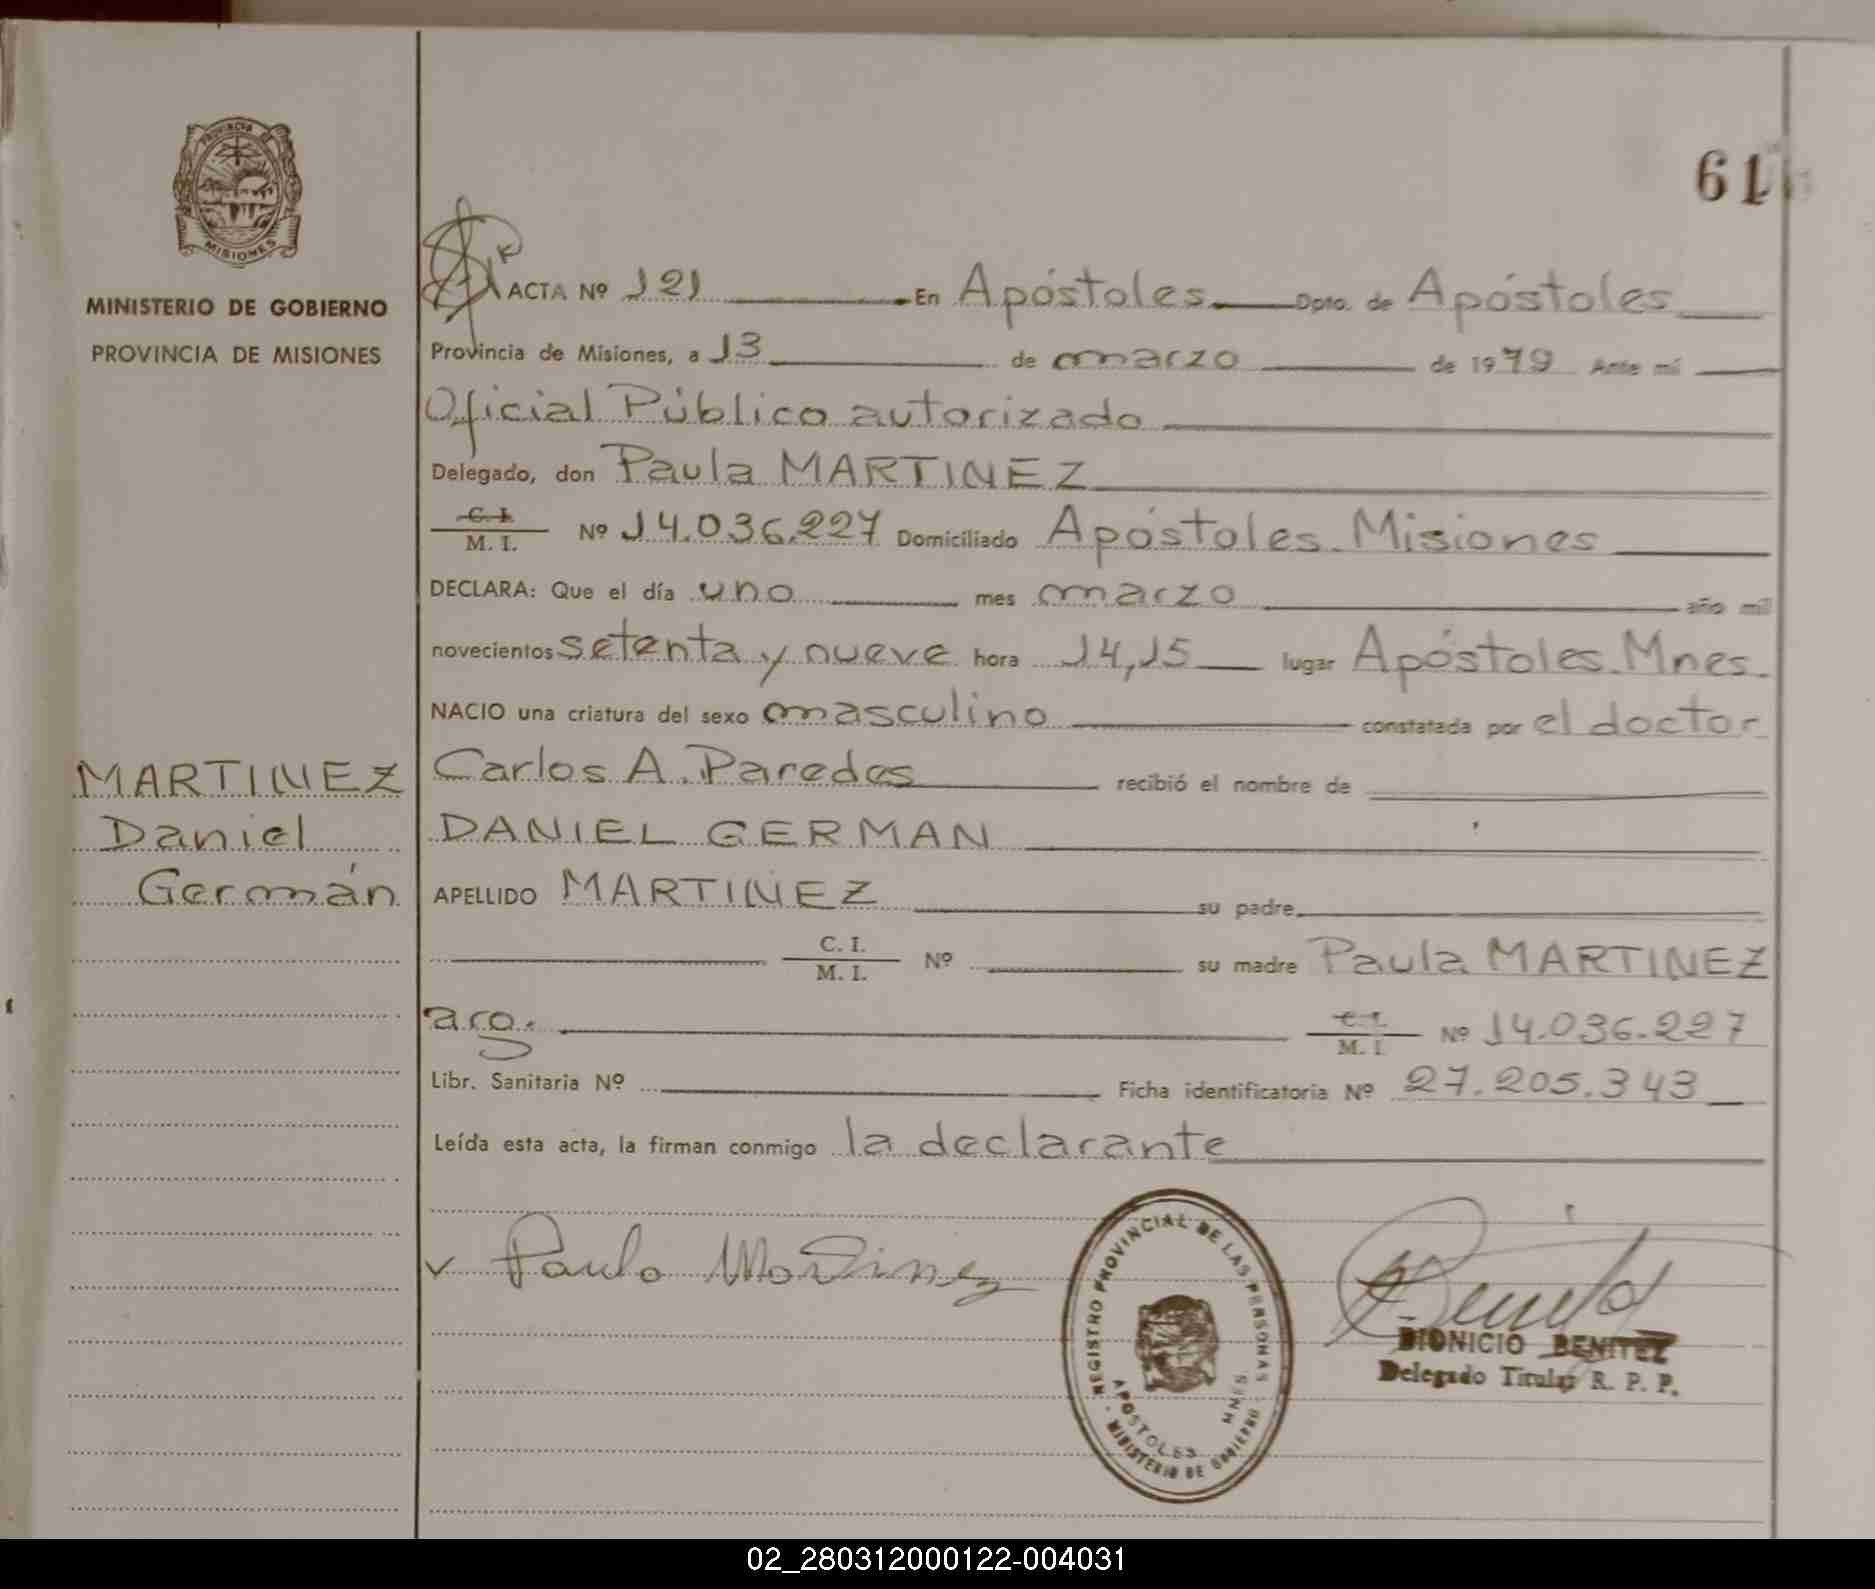 PROVINCIA DE
MISIONES
MINISTERIO DE GOBIERNO
PROVINCIA DE MISIONES
MARTINEZ
Daniel
Germán
61
ACTA Nº 121 En Apóstoles Dpto. de Apóstoles
Provincia de Misiones, a 13 de marzo de 1979 Ante mí
Oficial Público autorizado
Delegado, don Paula MARTINEZ
C. I.
M. I. Nº 14.036.227 Domiciliado Apóstoles. Misiones
DECLARA: Que el día uno mes marzo año mil
novecientos setenta y nueve hora 14,15 lugar Apóstoles. Mnes.
NACIO una criatura del sexo masculino constatada por el doctor
Carlos A. Paredes recibió el nombre de
DANIEL GERMAN
APELLIDO MARTINEZ su padre
C. I.
M. I. Nº su madre Paula MARTINEZ
arg. C. I.
M. I. Nº 14.036.227
Libr. Sanitaria Nº Ficha identificatoria Nº 27.205.343
Leída esta acta, la firman conmigo la declarante
Paula Martinez
REGISTRO PROVINCIAL DE LAS PERSONAS
APOSTOLES MNES.
MINISTERIO DE GOBIERNO
Benitez
DIONICIO BENITEZ
Delegado Titular R. P. P.
02_280312000122-004031